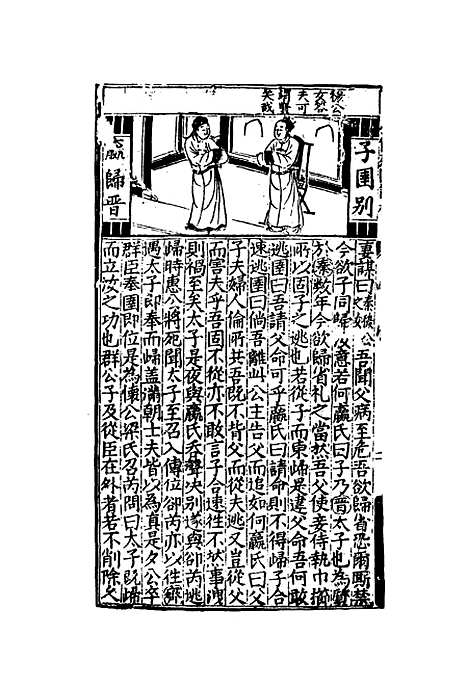 穆公
女容
夫可
謂賢
矣哉
子圉別
嬴歸晋
妻謀曰秦穆公之女吾聞父病至危吾欲歸省恐爾斯禁
今欲子同歸汝意若何嬴氏曰子乃晋太子也為質
於秦数年今欲歸省礼之當然吾父使妾侍執巾櫛
所以固子之逃也若從子而東歸是違父命吾何敢
逃圉曰吾請父命可乎嬴氏曰請命則不得歸子合
速逃圉曰倘吾離此公主告父而追如何嬴氏曰父
子夫婦人倫所共吾既不背父而從夫逃又豈從父
而害夫乎吾固不從亦不敢言子今速往不然事洩
則禍至矣太子是夜與嬴氏吞聲决别遂與卻芮逃
歸時惠公將死聞太子至召入傳位卻芮亦以往
遇太子即奉而歸盖滿朝士夫皆以為真是夕公卒
群臣奉圉即位是為懐公梁氏召芮問曰太子既歸
而立汝之功也群公子及從臣在外者若不削除久